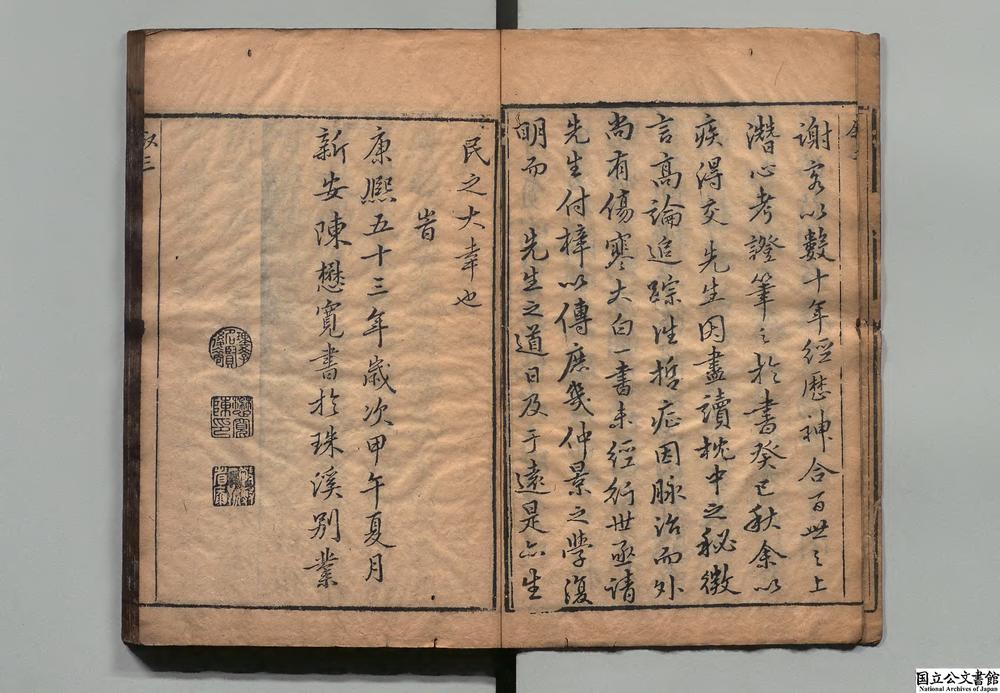 謝客以數十年經歷神合百世之上
潛心考證筆之於書癸巳秋余以
疾得交 先生因盡讀枕中之秘微
言高論追踪往哲症因脉治而外
尚有傷寒大白一書未經行世亟請
先生付梓以傳庶幾仲景之學復
明而 先生之道日及于遠是亦生
民之大幸也
旹
康熈五十三年歲次甲午夏月
新安陳懋寬書於珠溪別業
叙三
国立公文書館
National Archives of Japan